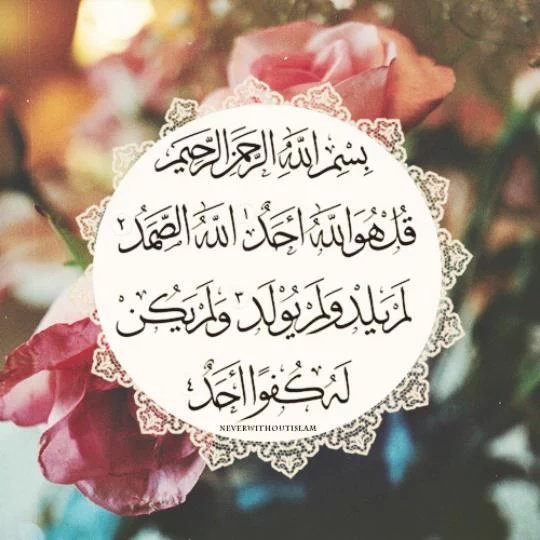 بِسْمِ اللَّهِ الرَّحْمَنِ الرَّحِيمِ
قُلْ هُوَ اللَّهُ أَحَدٌ ١ اللَّهُ الصَّمَدُ ٢
لَمْ يَلِدْ وَلَمْ يُولَدْ ٣ وَلَمْ يَكُنْ
لَهُ كُفُوًا أَحَدٌ ٤
NEVERWITHOUTISLAM